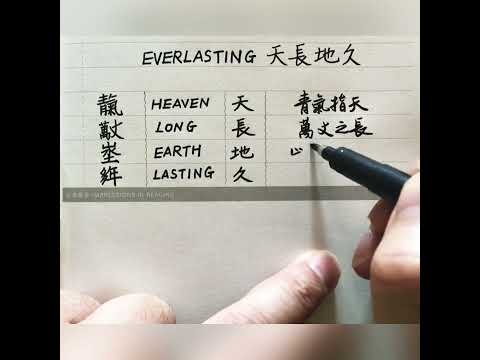 EVERLASTING 天長地久
靝 HEAVEN 天 青氣指天
LONG 長 萬丈之長
埊 EARTH 地 山
LASTING 久
IMPRESSIONS IN READING